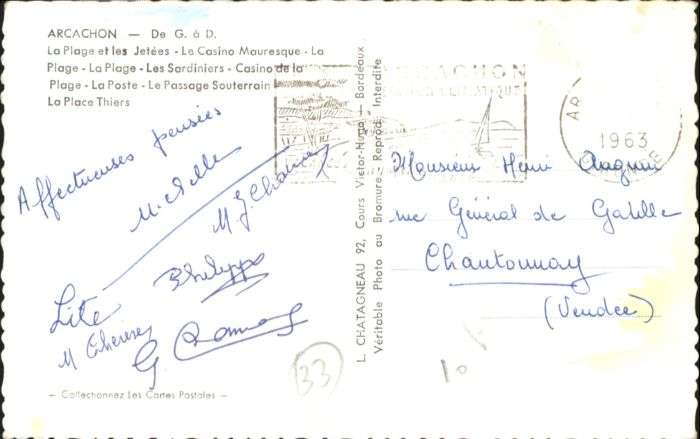 ARCACHON — De G. à D.
La Plage et les Jetées - Le Casino Mauresque - La
Plage - La Plage - Les Sardiniers - Casino de la
Plage - La Poste - Le Passage Souterrain
La Place Thiers
Affectueuses pensées
Philippe
Lite
G.
33
- Collectionnez Les Cartes Postales -
L. CHATAGNEAU 92, Cours Victor-Hugo — Bordeaux
Véritable Photo au Bromure - Reprod. Interdite
ARCACHON
1963
Monsieur Henri
rue Général de
Chantonnay
(Vendée)
10